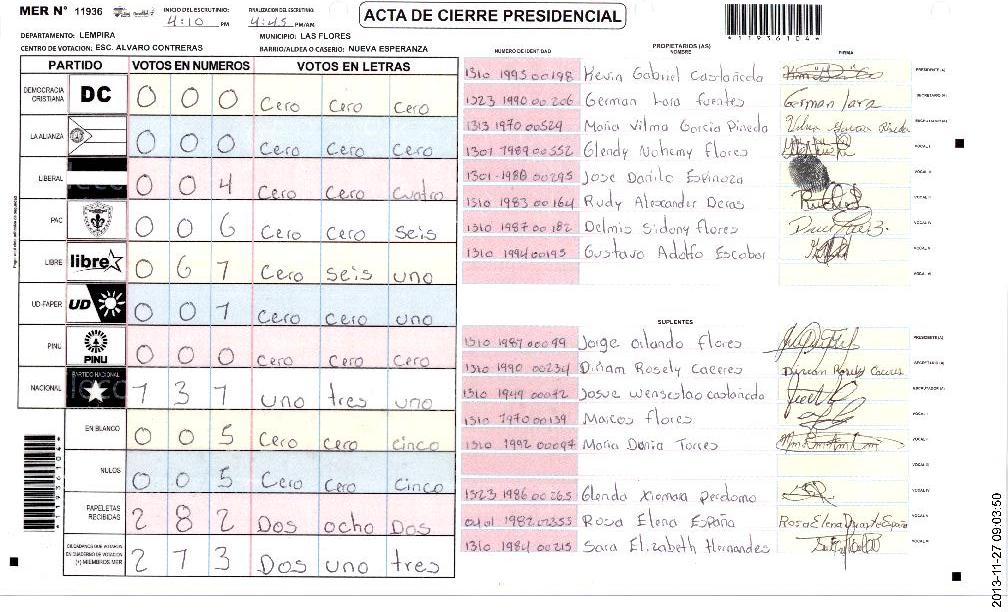 MER N° 11936
INICIO DEL ESCRUTINIO: 4:10 PM
FINALIZACION DEL ESCRUTINIO: 4:45 PM/AM
ACTA DE CIERRE PRESIDENCIAL
*11936104*
DEPARTAMENTO: LEMPIRA
MUNICIPIO: LAS FLORES
CENTRO DE VOTACION: ESC. ALVARO CONTRERAS
BARRIO/ALDEA O CASERIO: NUEVA ESPERANZA
PARTIDO VOTOS EN NUMEROS VOTOS EN LETRAS
DEMOCRACIA CRISTIANA DC 0 0 0 Cero Cero Cero
LA ALIANZA 0 0 0 Cero Cero Cero
LIBERAL 0 0 4 Cero Cero Cuatro
PAC 0 0 6 Cero Cero Seis
LIBRE libre 0 6 1 Cero seis uno
UD-FAPER UD 0 0 1 Cero Cero uno
PINU PINU 0 0 0 Cero Cero Cero
NACIONAL PARTIDO NACIONAL 1 3 1 uno tres uno
EN BLANCO 0 0 5 Cero cero cinco
NULOS 0 0 5 Cero Cero Cinco
PAPELETAS RECIBIDAS 2 8 2 Dos ocho Dos
CIUDADANOS QUE VOTARON EN CUADERNO DE VOTACION (+) MIEMBROS MER 2 1 3 Dos uno tres
*11936104*
PROPIETARIOS (AS)
NUMERO DE IDENTIDAD NOMBRE FIRMA
1310 1995 00198 Kevin Gabriel Castañeda PRESIDENTE(A)
1323 1990 00206 German Lara fuentes German Lara SECRETARIO(A)
1313 1970 00529 Maria Vilma Garcia Pineda ESCRUTADOR(A)
1301 1989 00552 Glendy Nohemy Flores VOCAL I
1301 1980 00295 Jose Danilo Espinoza VOCAL II
1310 1983 00164 Rudy Alexander Deras VOCAL III
1310 1987 00182 Delmis Sidony flores VOCAL IV
1310 1994 00195 Gustavo Adolfo Escobar VOCAL V
VOCAL VI
SUPLENTES
1310 1987 00099 Jorge orlando flores PRESIDENTE(A)
1310 1990 00234 Diriam Rosely Caceres Diriam Rosely Caceres SECRETARIO(A)
1310 1949 00072 Josue wenscolao castañeda ESCRUTADOR(A)
1310 1970 00139 Marcos flores VOCAL I
1310 1992 00097 Maria Dania Torres VOCAL II
VOCAL III
1323 1986 00265 Glenda Xiomara perdomo VOCAL IV
0401 1982 02355 Rosa Elena España Rosa Elena Duarte España VOCAL V
1310 1984 00215 Sara Elizabeth Hernandes VOCAL VI
2013-11-27 09:03:50